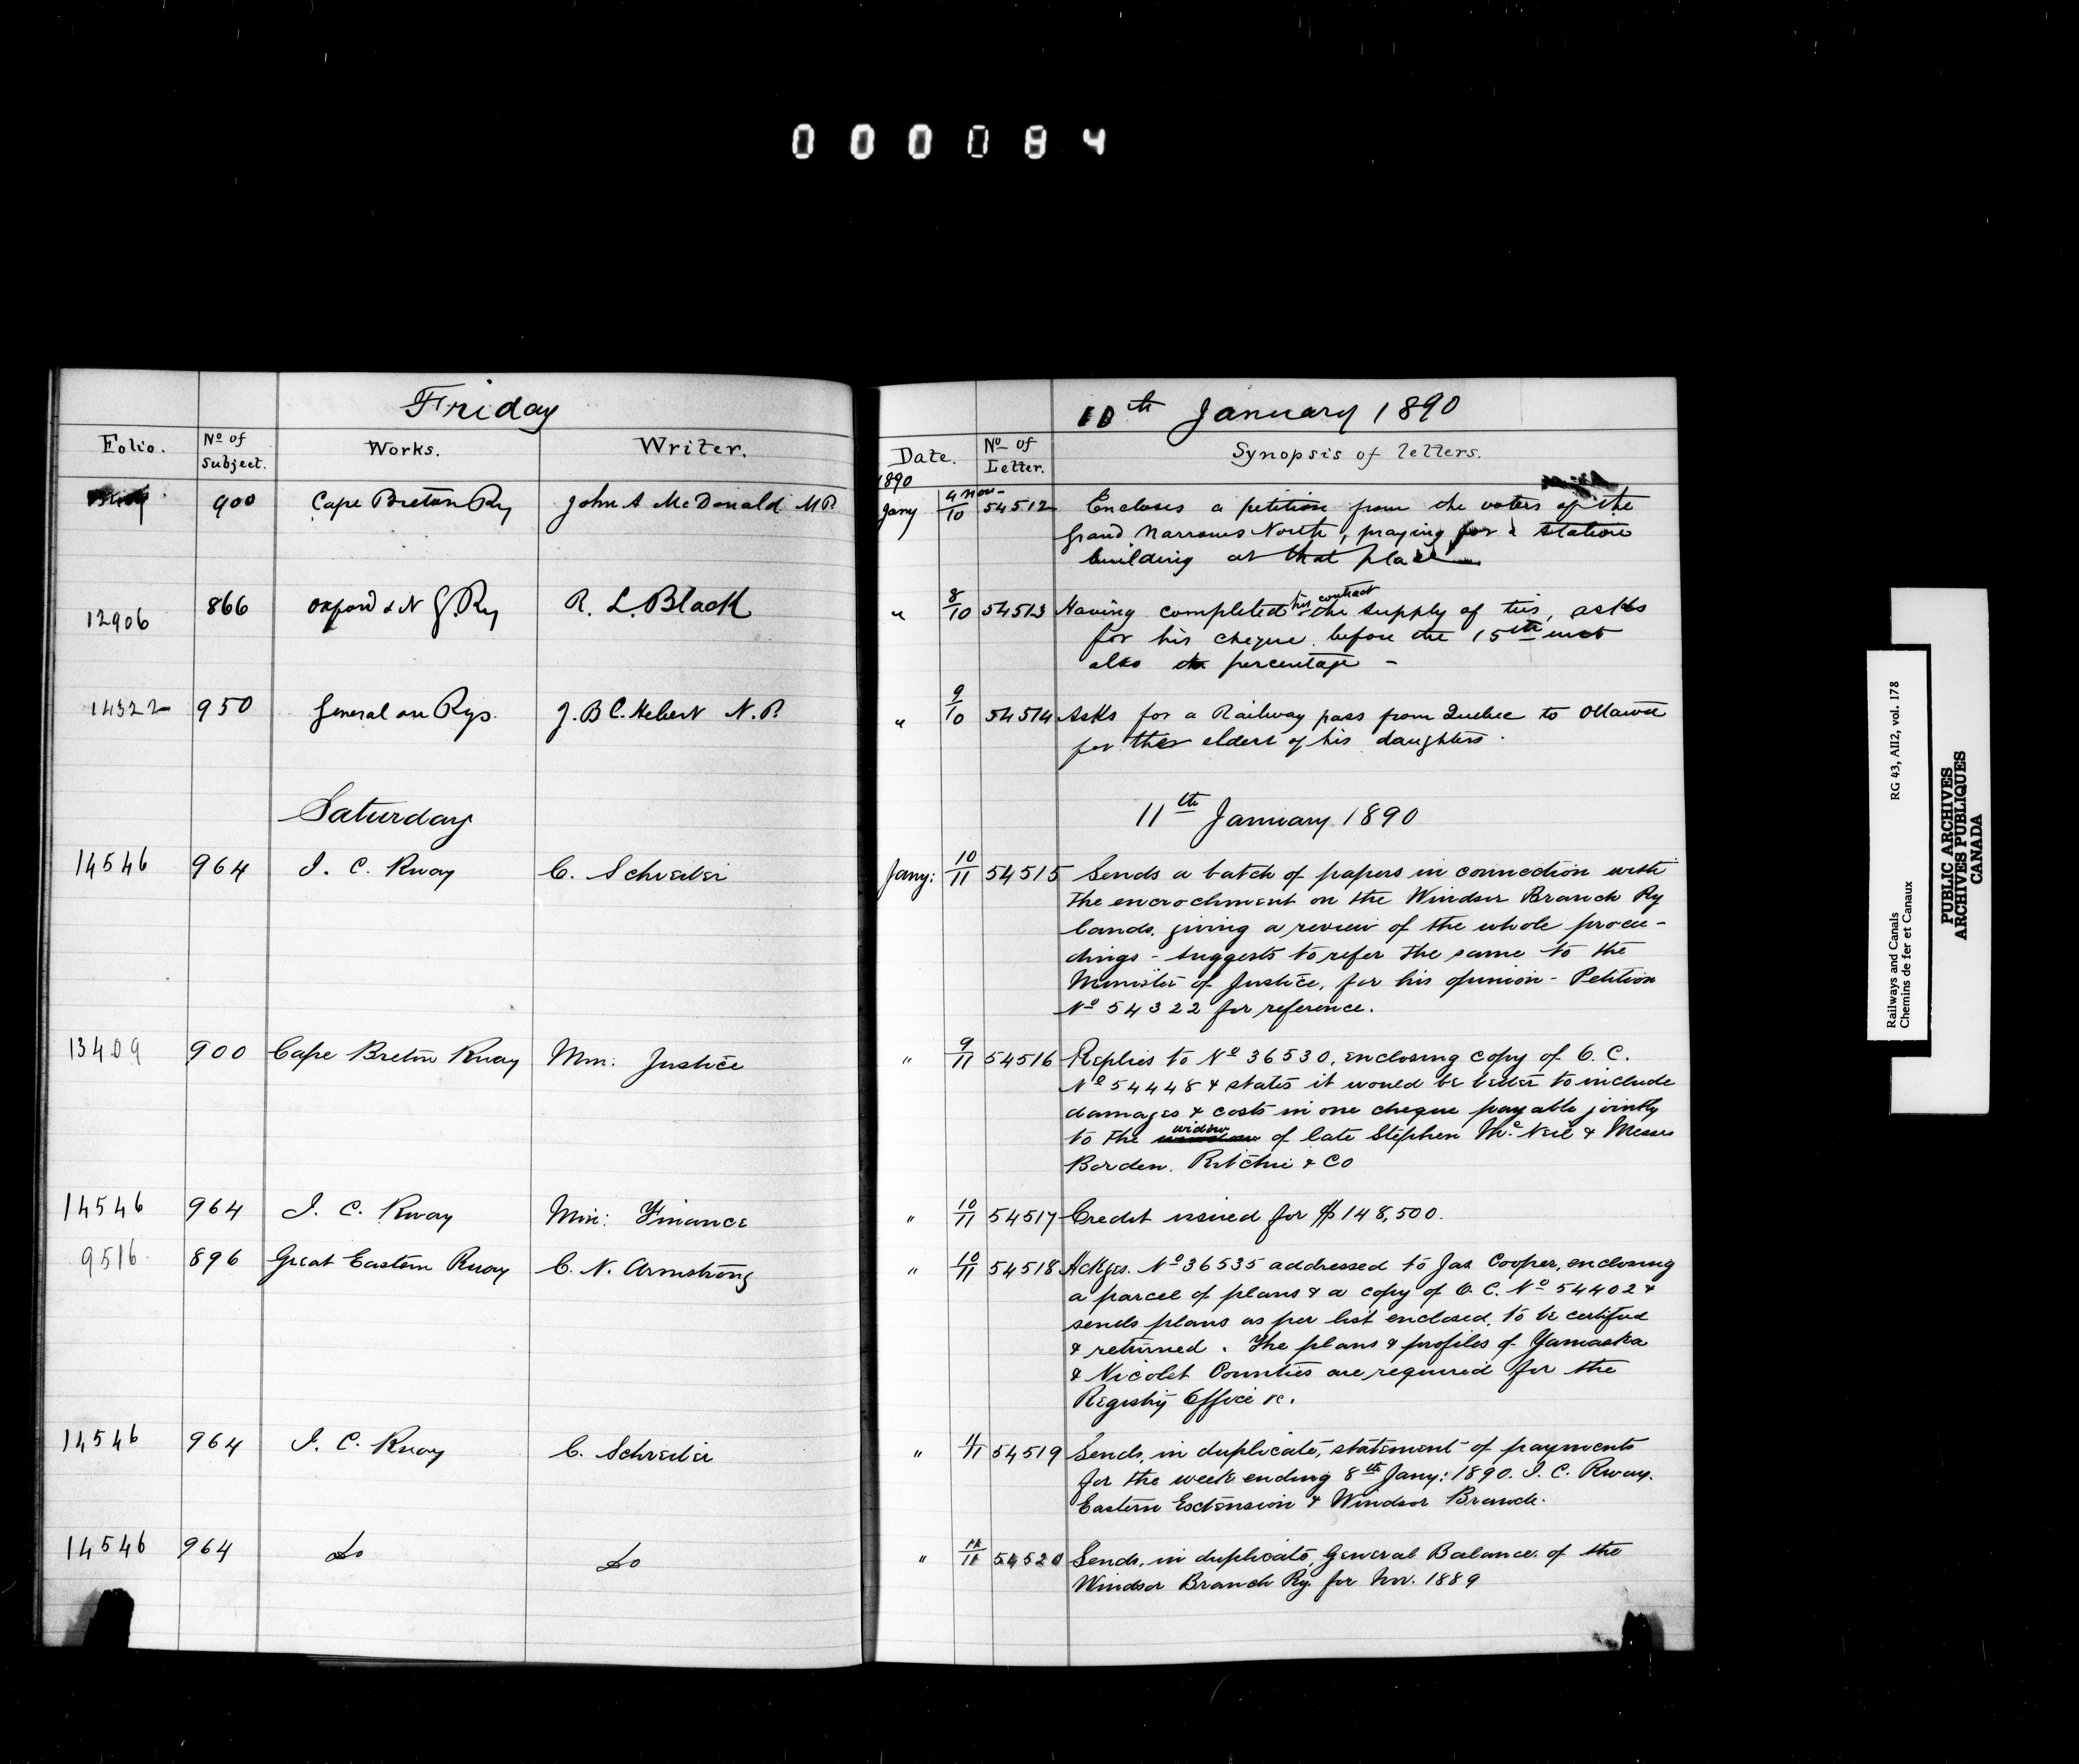 000084
Friday 10th January 1890
Folio. No of Subject. Works. Writer. Date. No of Letter. Synopsis of letters.
1890
900 Cape Breton Ry John A McDonald M.P. Jany 4 Nov-/10 54512 Encloses a petition from the voters of the
Grand Narrows North, praying for a station
building at that place
12906 866 Oxford & N G. Ry R. L. Black " 8/10 54513 Having completed his contract the supply of ties, asks
for his cheque before the 15th inst
also percentage -
14322 950 General on Rys. J. B C. Hebert N. P. " 9/10 54514 Asks for a Railway pass from Quebec to Ottawa
for the eldest of his daughters.
Saturday 11th January 1890
14546 964 I. C. Rway C. Schreiber Jany: 10/11 54515 Sends a batch of papers in connection with
the encrochment on the Windsor Branch Ry
lands, giving a review of the whole procee-
dings - suggests to refer the same to the
Minister of Justice, for his opinion - Petition
No 54322 for reference.
13409 900 Cape Breton Rway Min: Justice " 9/11 54516 Replies to No 36530, enclosing copy of O. C.
No 54448 & states it would be better to include
damages & costs in one cheque payable jointly
to the widow of late Stephen Mc Neil & Messrs
Borden, Ritchie & Co
14546 964 I. C. Rway Min: Finance " 10/11 54517 Credit issued for $148,500.
9516 896 Great Eastern Rway C. N. Armstrong " 10/11 54518 Ackges. No 36535 addressed to Jas Cooper, enclosing
a parcel of plans & a copy of O. C. No 54402 &
sends plans as per list enclosed, to be certified
& returned. The plans & profiles of Yamaska
& Nicolet Counties are required for the
Registry Office &c.
14546 964 I. C. Rway C. Schreiber " 11/11 54519 Sends, in duplicate, statement of payments
for the week ending 8th Jany: 1890. I. C. Rway.
Eastern Extension & Windsor Branch.
14546 964 Do Do " 11/11 54520 Sends, in duplicate, General Balance of the
Windsor Branch Ry. for Nov. 1889
Railways and Canals RG 43, AII2, vol. 178
Chemins de fer et Canaux
PUBLIC ARCHIVES
ARCHIVES PUBLIQUES
CANADA